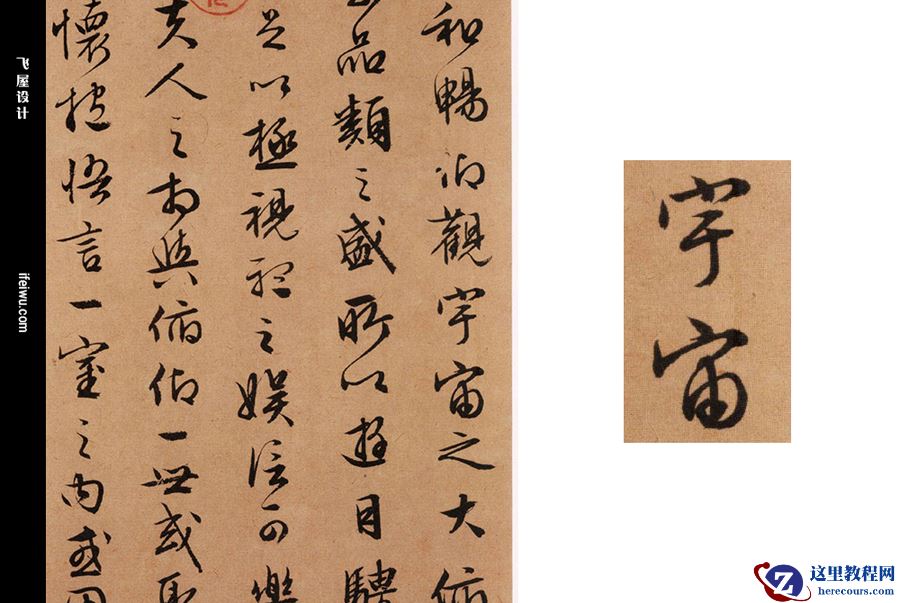 和暢仰觀宇宙之大俯
品類之盛所以遊目騁
足以極視聽之娛信可樂
夫人之相與俯仰一世或取
懷抱悟言一室之內或因
宇宙
飞屋设计
ifeiwu.com
这里教程网
herecours.com